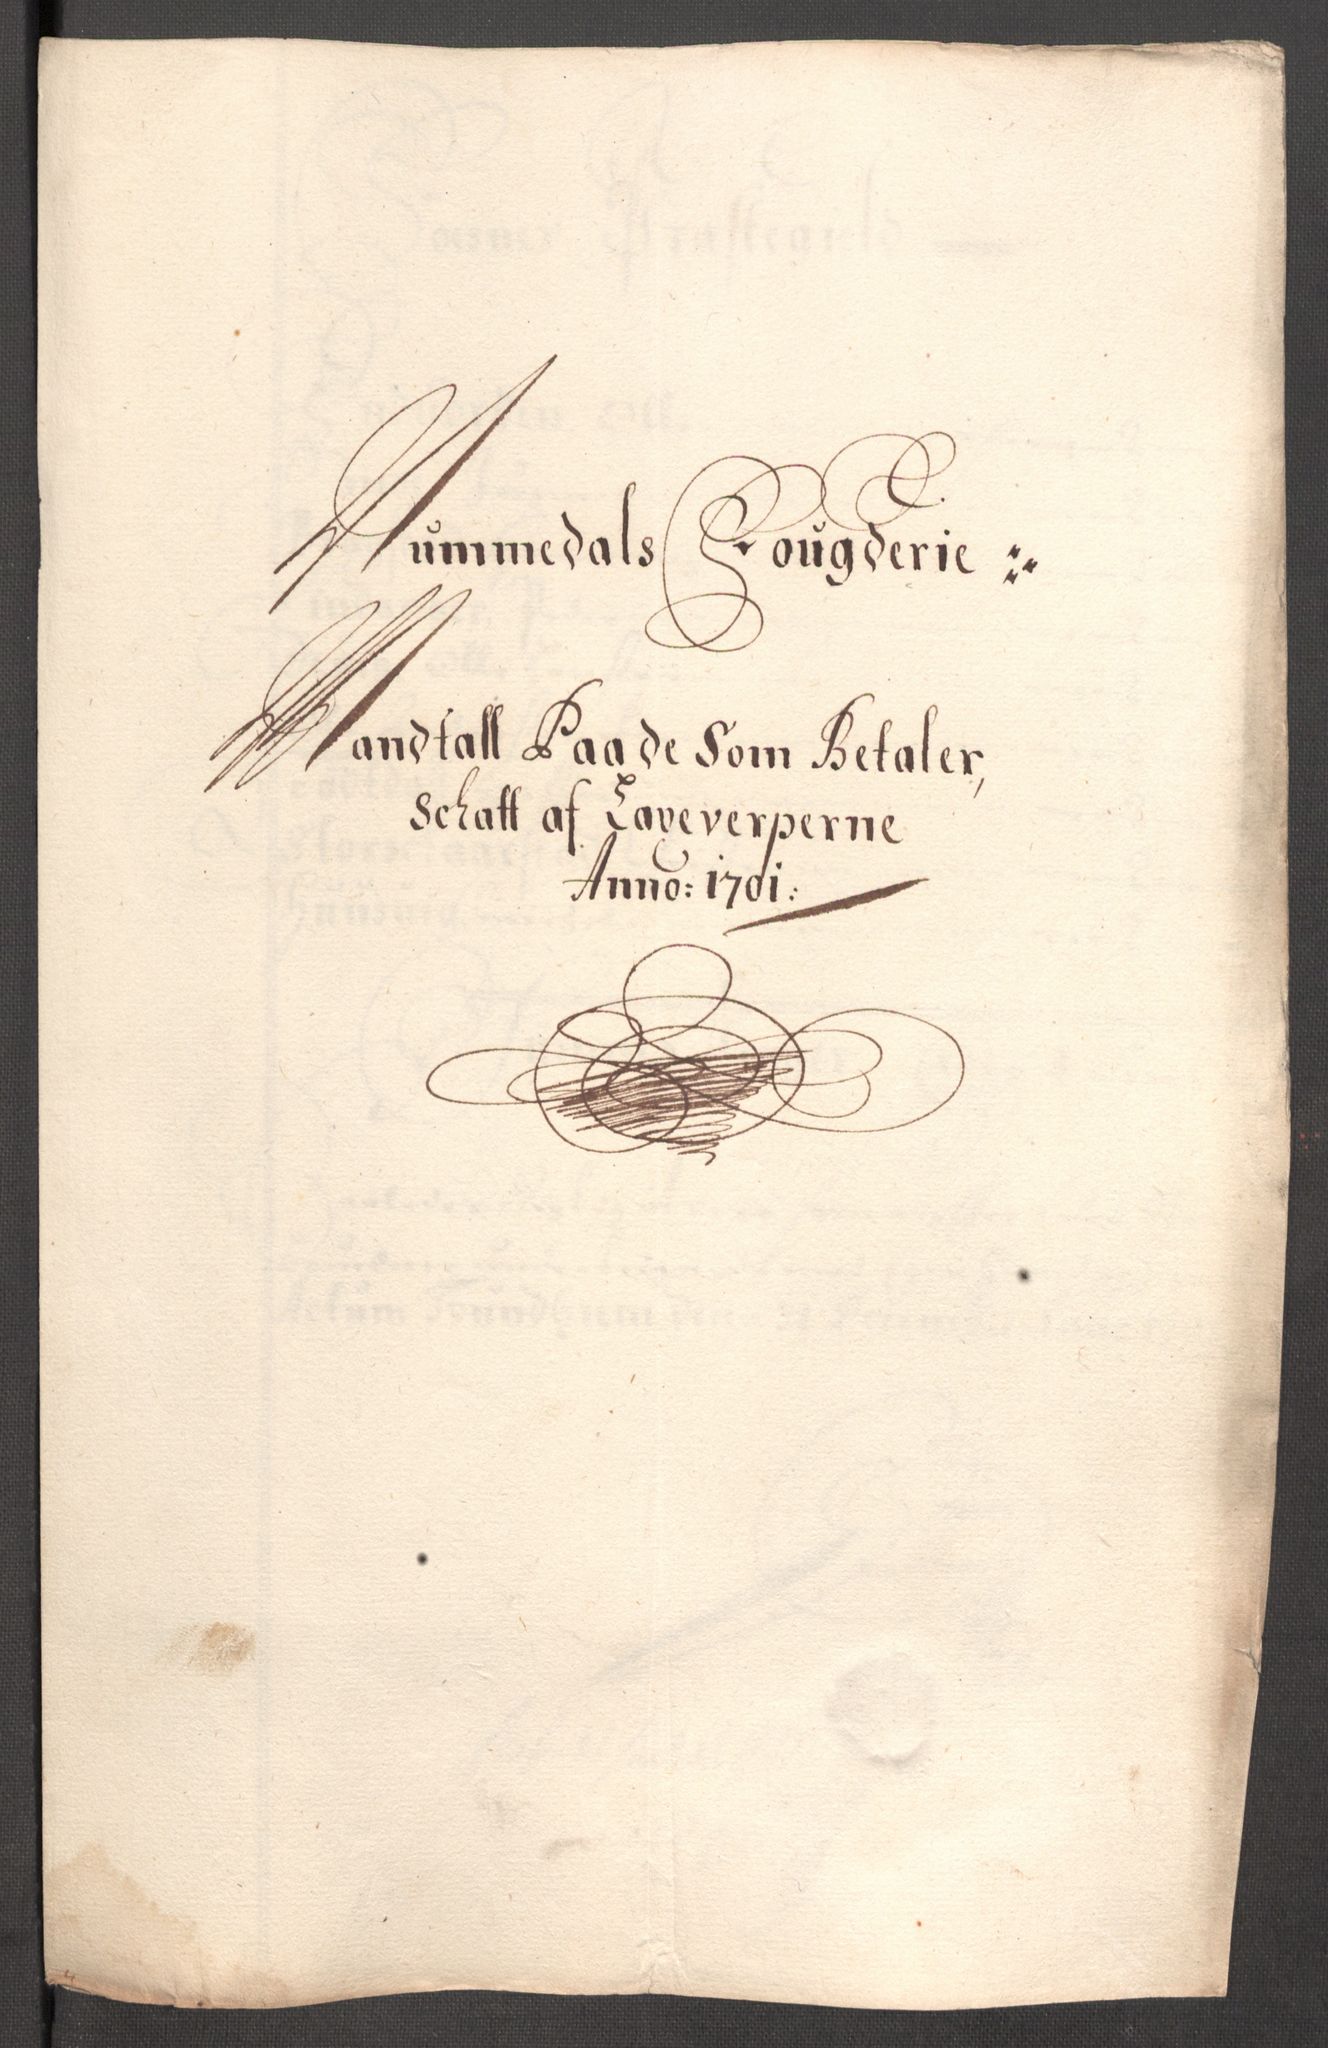 Nummedals Fougderie
Mandtall Paa de Som Betaler,
Schatt af Laxeverperne
Anno: 1701: